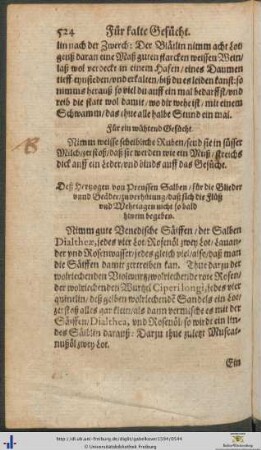 524 Für kalte Gesücht.
lin nach der Zwerch: Der Blätlin nimm acht Lot/
geuß daran eine Maß guten starcken weissen Wein/
laß wol verdeckt in einem Hafen / eines Daumen
tieff eynsieden / vnd erkalten / biß du es leiden kanst: so
nimms herauß so viel du auff ein mal bedarffst / vnd
reib die statt wol damit / wo dir wehe ist / mit einem
Schwamm / das thue alle halbe Stund ein mal.
Für ein wütend Gesücht.
Nimm weisse scheiblichte Ruben / seud sie in süsser
Milch / zerstoß / daß sie werden wie ein Muß / streichs
dick auff ein Leder / vnd binds auff das Gesücht.
Deß Hertzogen von Preussen Salben / für die Glieder
vnnd Geäder / zuverhütung / daß sich die Flüß
vnd Wehetagen nicht so bald
hinein begeben.
Nimm gute Venedische Säiffen / der Salben
Dialtheæ, jedes vier Lot Rosenöl zwey Lot / Lauan-
der vnd Rosenwasser / jedes gleich viel / also / daß man
die Säiffen damit zertreiben kan. Thue darzu der
wolriechenden Violwurtz / wolriechende rote Rosen /
der wolriechenden Wurtzel Ciperi longi, jedes vier
quintlin / deß gelben wolriechende Sandels ein Lot /
zerstoß alles gar klein / als dann vermische es mit der
Säiffen / Dialthea, vnd Rosenöl / so wirdt ein lin-
des Sälblin darauß: Darzu thue zuletzt Muscat-
nußöl zwey Lot.
Ein